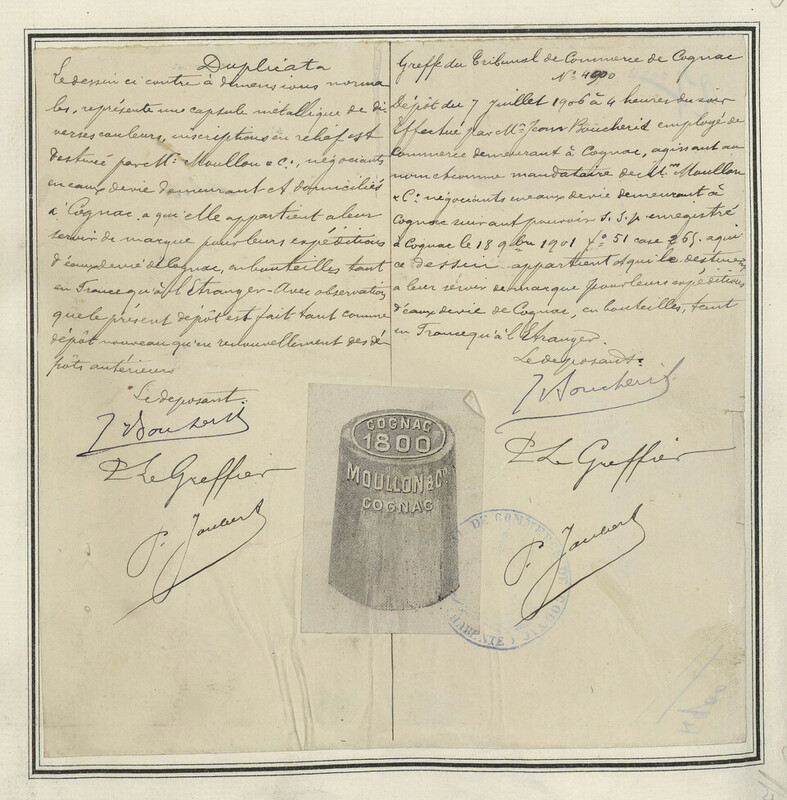 Duplicata
Le dessin ci contre à dimensions norma
les, représente une capsule métallique de di
verses couleurs, inscriptions en relief est
destiné par Mrs Moullon & Cie, négociants
en eaux de vie demeurant et domiciliés
à Cognac, a qui elle appartient a leur
servir de marque pour leurs expéditions
d'eaux de vie de Cognac, en bouteilles tant
en France qu'à l'Etranger - Avec observation
que le présent dépôt est fait tant comme
dépôt nouveau qu'en renouvellement des dé
pôts antérieurs
Le déposant:
J Boucherit
P. Le Greffier
P. Joubert
Greffe du Tribunal de Commerce de Cognac
No 4900
Dépôt du 7 juillet 1906 à 4 heures du soir
Effectué par Mr Jean Boucherit employé de
Commerce demeurant à Cognac, agissant au
nom et comme mandataire de Mrs Moullon
& Cie négociants en eaux de vie demeurant à
Cognac suivant pouvoir S. S. p. enregistré
à Cognac le 18 9bre 1901 fo 51 case 65. a qui
ce dessin appartient et qui le destinent
a leur servir de marque pour leurs expéditions
d'eaux de vie de Cognac, en bouteilles, tant
en France qu'à l'Etranger.
Le déposant:
J Boucherit
P. Le Greffier
P. Joubert
COGNAC
1800
MOULLON & Cie
COGNAC
DE COMMERCE DE COGNAC
CHARENTE